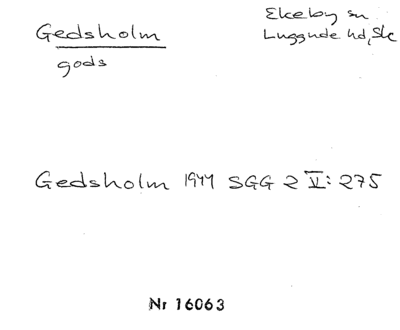 Gedsholm
gods
Ekeby sn
Luggude hd, Sk
Gedsholm 1944 SGG 2 V: 275
Nr 16063